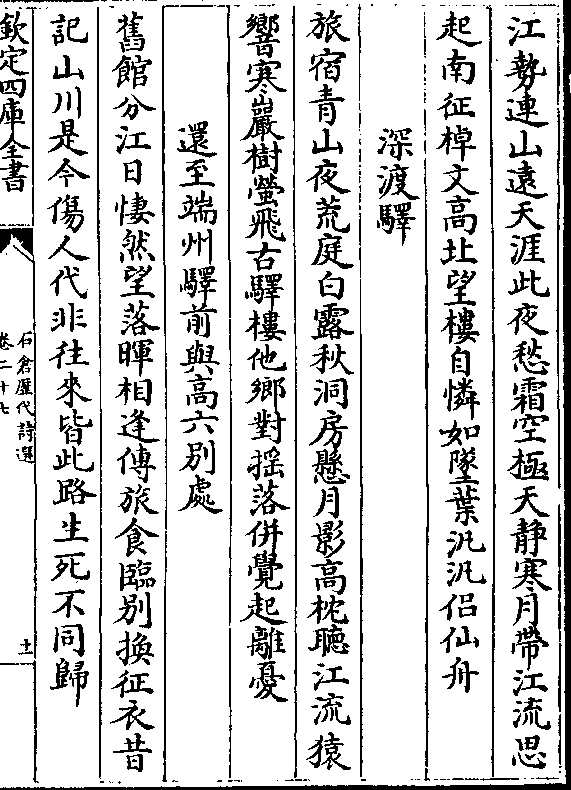 江勢連山遠天涯此夜愁霜空極天靜寒月帶江流思
起南征棹文高北望樓自憐如墜葉汎汎侣仙舟
深渡驛
旅宿青山夜荒庭白露秋洞房懸月影高枕聽江流猿
響寒巖樹螢飛古驛樓他鄉對揺落併覺起離憂
還至端州驛前與高六別處
舊館分江日悽然望落暉相逢傳旅食臨別換征衣昔
記山川是今傷人代非往來皆此路生死不同歸
欽定四庫全書
石倉歷代詩選
卷二十七
十